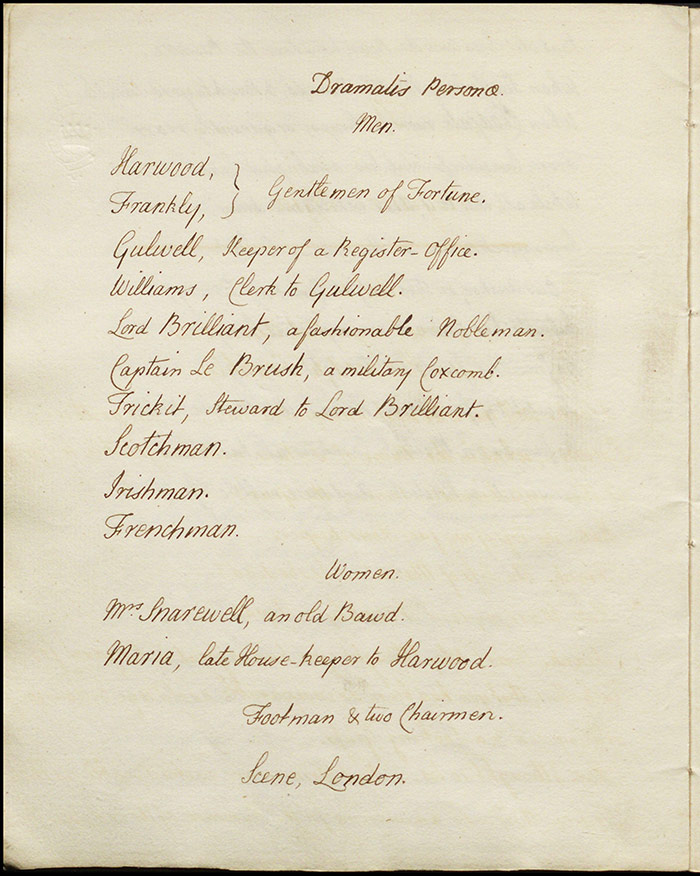 Dramatis Personæ.
Men.
Harwood,
Frankly, } Gentlemen of Fortune.
Gulwell, Keeper of a Register-Office.
Williams, Clerk to Gulwell.
Lord Brilliant, a fashionable Nobleman.
Captain Le Brush, a military Coxcomb.
Trickit, Steward to Lord Brilliant.
Scotchman.
Irishman.
Frenchman.
Women.
Mrs Snarewell, an old Bawd.
Maria, late House-keeper to Harwood.
Footman & two Chairmen.
Scene, London.